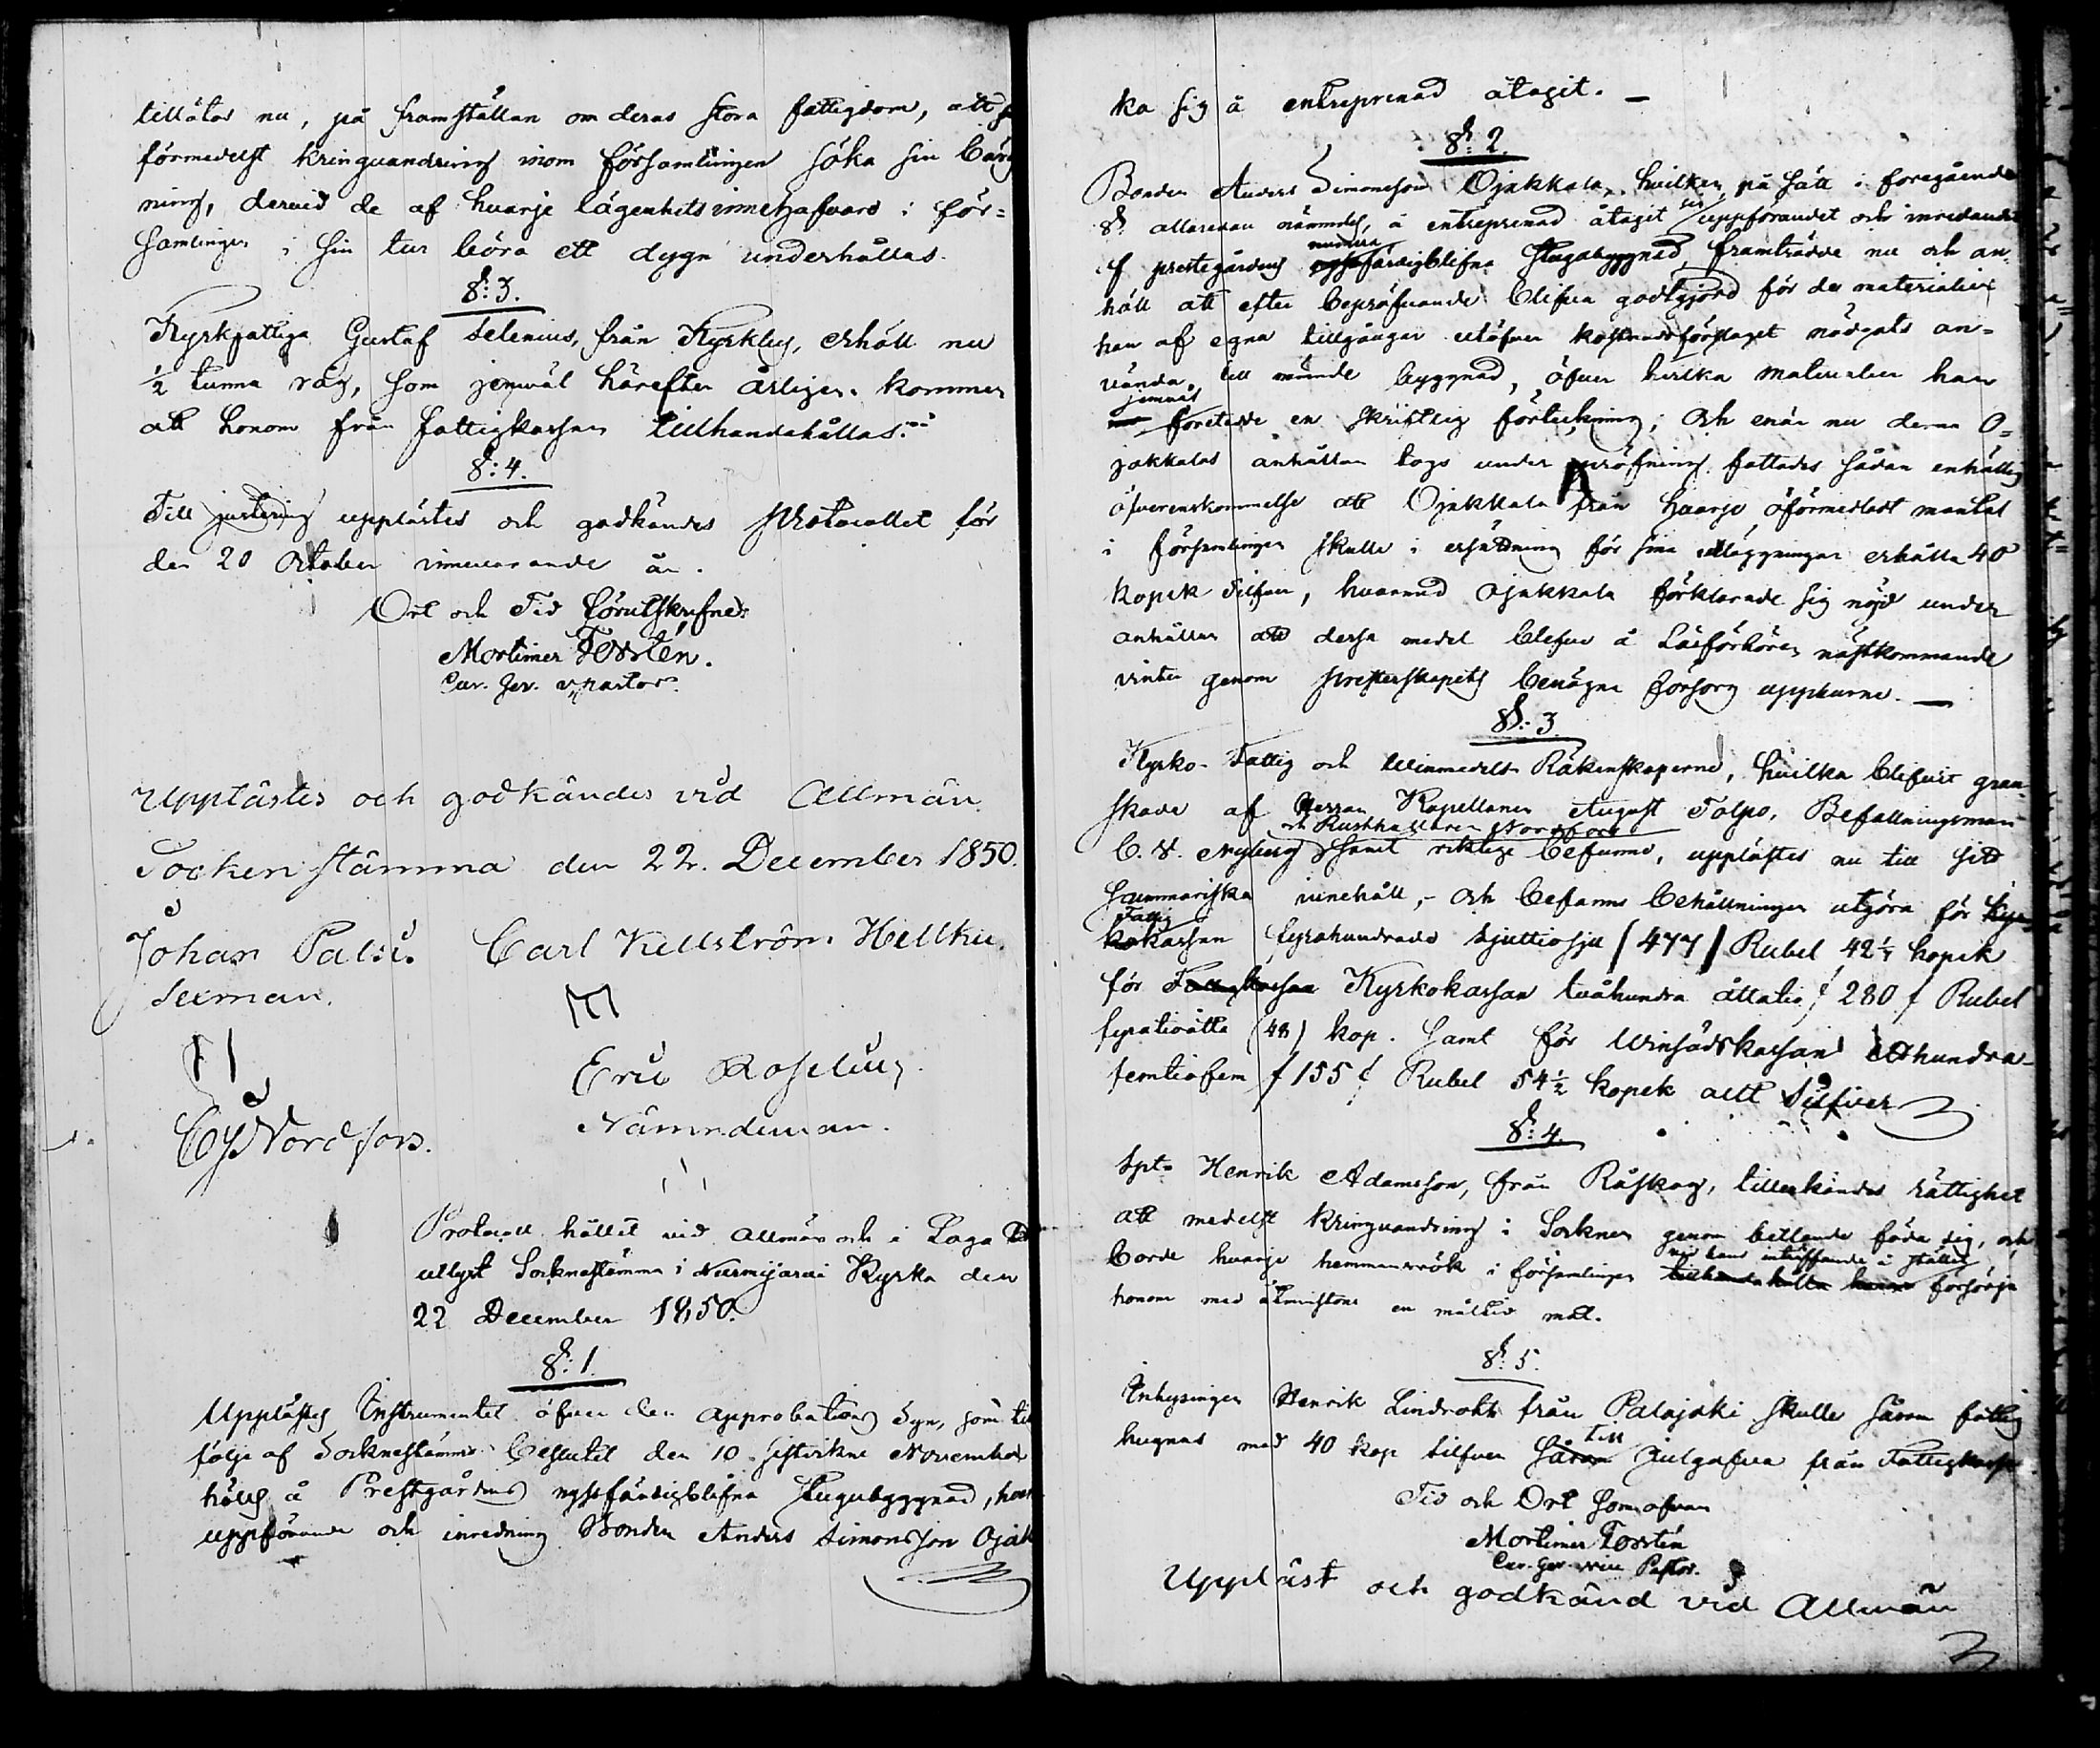 tillåtos nu, på framställan om deras stora fattigdom, att
förmedelst kringvandring inom församlingen söka sin berg
ning, dervid de af hvarje lägenhets innehafvare i för-
samlingen i sin tur böra ett dygn underhållas.
§: 3.
Kyrkfattiga Gustaf Selenius, från Kyrkby, erhöll nu
½ tunna råg, som jemväl härefter årligen kommer
att honom från fattigkassan tillhandahållas.
§: 4.
Till justering upplästes och godkändes Protocollet för
den 20 October innevarande år.
Ort och Tid förutskrefne:
Mortimer Forstén.
Cur. Ger. v pastor.
Upplästes och godkändes vid Allmän
Sockenstämma den 22. December 1850.
Johan Palsi. Carl Kellström. Hellku.
Sexman.
Eric Roselius
Nämndeman.
Nordfors.
Protocoll hållit vid allmän och i Laga Tid
utlyst Sockenstämma i Nurmijärvi Kyrka den
22 December 1850.
§: 1.
Upplästes Instrumentet öfver den approbations Syn, som till
följe af Sockenstämmo Beslutet den 10 sistvikne November
hölls å Prestgårdens nyss färdigblifna Stugubyggnad, hvars
uppförande och inredning Bonden Anders Simonsson Ojak
ka sig å entreprenad åtagit. —
§: 2.
Bonden Anders Simonsson Ojakkala, hvilken, på sätt i föregående
§. allaredan nämndes, å entreprenad åtagit sig uppförandet och inredandet
numera
af prestegårdens färdigblifna Stugubyggnad, framträdde nu och an-
höll att efter bepröfvande blifva godtgjord för de materialier
han af egna tillgångar utöfver kostnadsförslaget nödgats an-
vända till nämnde byggnad, öfver hvilka materialier han
jemväl
företedde en skriftlig förteckning; Och enär nu denna O-
jakkalas anhållan togs under pröfning fattades sådan enhällig
öfverenskommelse att Ojakkala från hvarje oförmedladt mantal
i församlingen skulle i ersättning för sina utläggningar erhålla 40
kopek Silfver, hvarmed Ojakkala förklarade sig nöjd under
anhållan att dessa medel blefve å Läsförhören nästkommande
vinter genom presterskapets benägna försorg uppburne. —
§: 3.
Kyrko- Fattig och Winmedels Räkenskaperne, hvilka blifvit gran-
skade af Herrar Kapellanen August Tolpo, Befallningsman
och Rusthållaren Nordfors
C. W. Nyberg samt riktige befunne, upplästes nu till sitt
summariska innehåll,- och befanns behållningen utgöra för Kyr
Fattig
kokassan fyrahundrade sjuttiosju (477) Rubel 42½ kopek
för Fattigkassan Kyrkokassan tvåhundra åttatio (280) Rubel
fyratioåtta (48) kop. samt för Winsädskassan etthundra-
femtiofem (155) Rubel 54½ kopek allt Silfver
§: 4.
Spt. Henrik Adamsson, från Råskog, tillerkändes rättighet
att medelst kringvandring i Socknen genom betlande föda sig, och
vid hans inträffande i stället
borde hvarje hemmansrök i församlingen tillhandahålla honom försörja
honom med åtminstone en måltid mat.
§: 5.
Inhysingen Henrik Lindroth från Palojoki skulle såsom fattig
Till
hugnas med 40 kop silfver såsom Julgåfva från Fattigkassan.
Tid och Ort som ofvan
Mortimer Forstén
Cur. Ger. vice Pastor.
Uppläst och godkänd vid Allmän